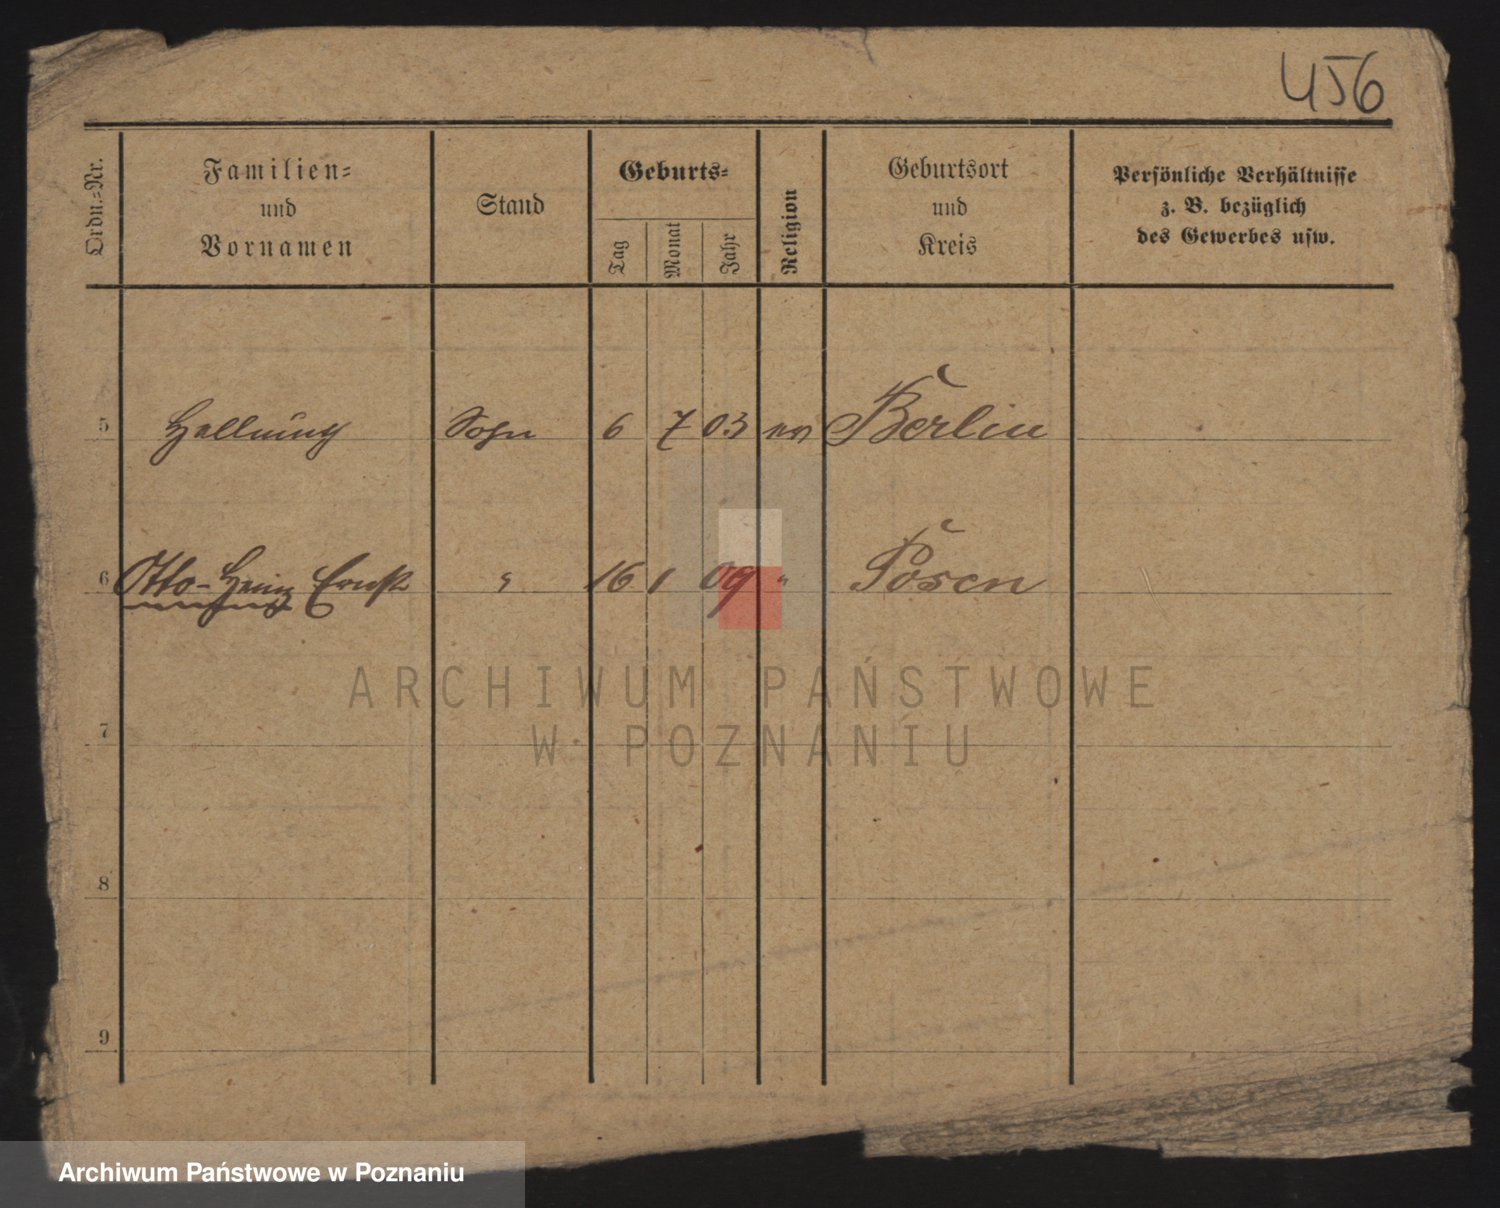 456
Ordn.-Nr.
Familien-
und
Vornamen
Stand
Geburts-
Tag
Monat
Jahr
Religion
Geburtsort
und
Kreis
Persönliche Verhältnisse
z. B. bezüglich
des Gewerbes usw.
5 Hellmuth Sohn 6 7 03 ev Berlin
6 Otto-Heinz Ernst " 16 1 09 " Posen
7
8
9
ARCHIWUM PAŃSTWOWE
W POZNANIU
Archiwum Państwowe w Poznaniu